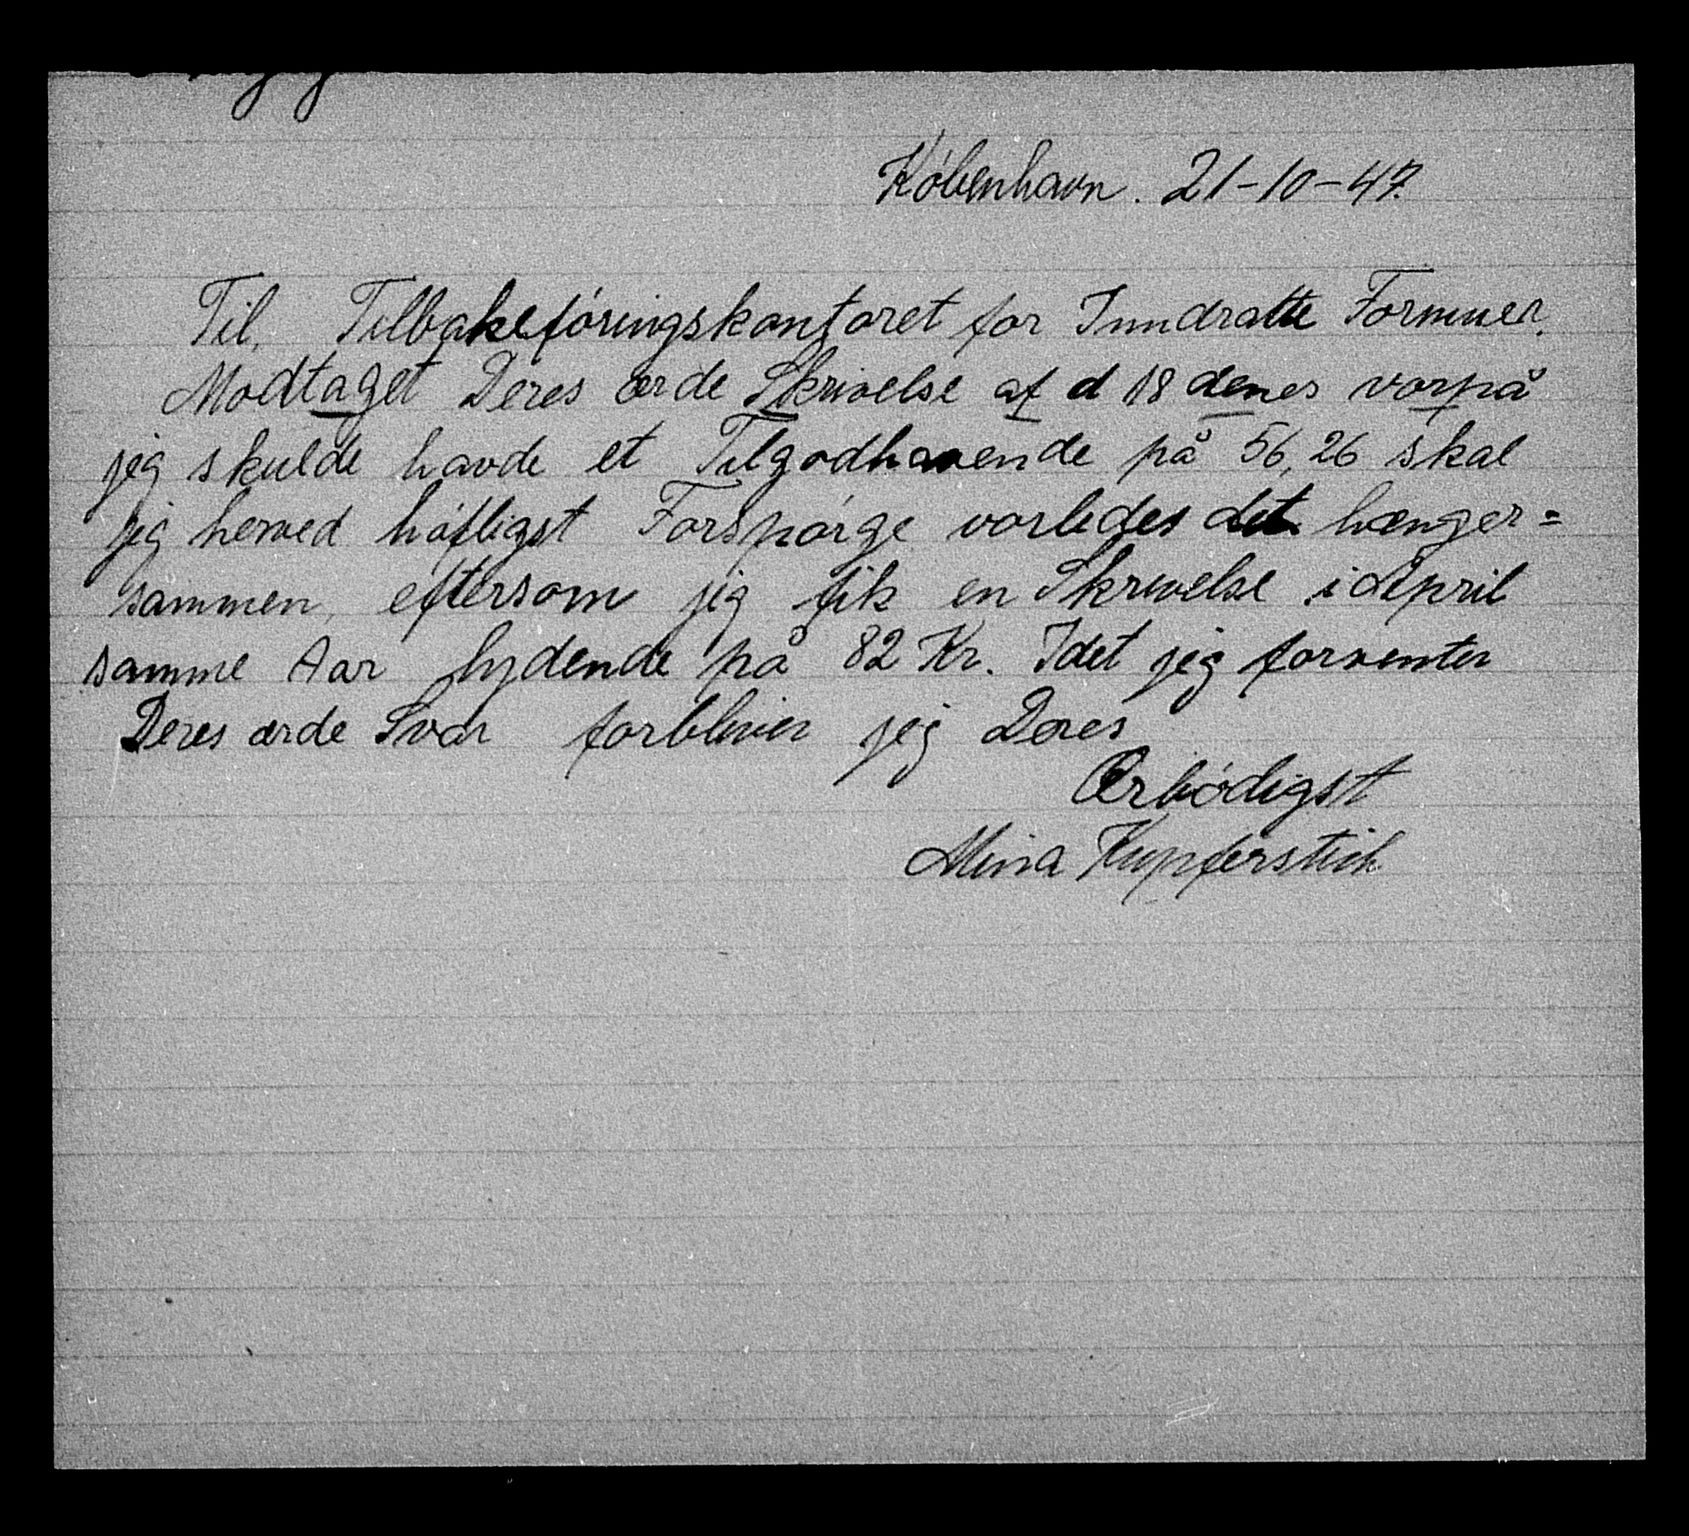 København. 21-10-47.
Til. Tilbakeføringskontoret for Inndratte Formuer.
Modtaget Deres ærde Skrivelse af d 18 denes vorpå
jeg skulde havde et Tilgodhavende på 56,26 skal
jeg herved høfligst Forspørge vorledes det hænger=
sammen, eftersom jeg fik en Skrivelse i April
samme Aar lydende på 82 Kr. Idet jeg forventer
Deres ærde Svar forbliver jeg Deres
Ærbødigst
Mina Kupferstich